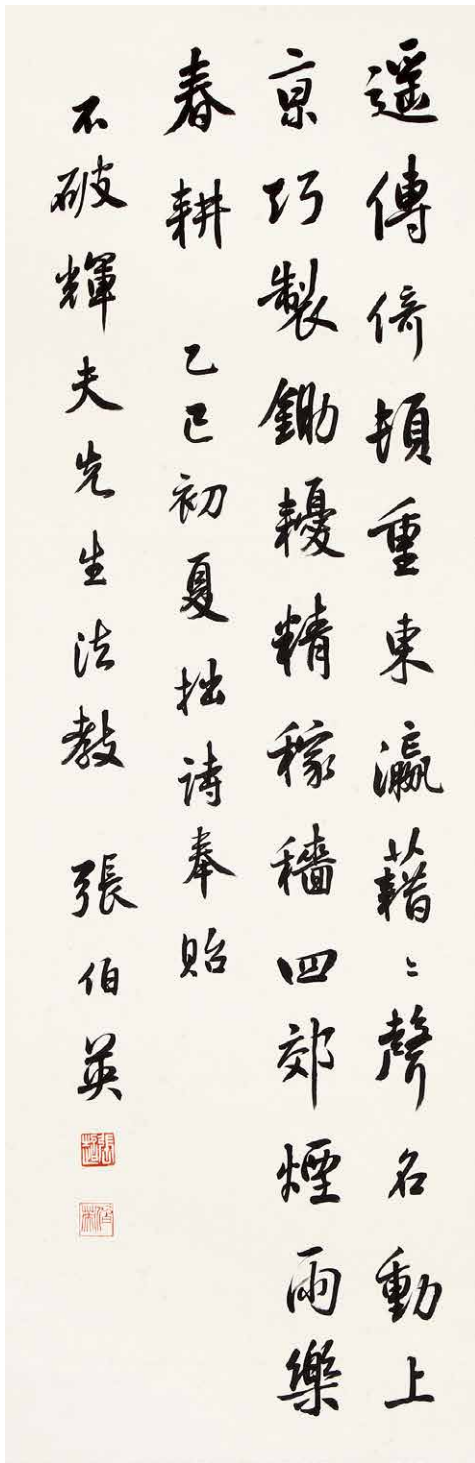 遥傳倚頓重東瀛藉〻聲名動上
京巧製鋤耰精稼穡四郊煙雨樂
春耕 乙巳初夏拙詩奉貽
不破輝夫先生法教 張伯英